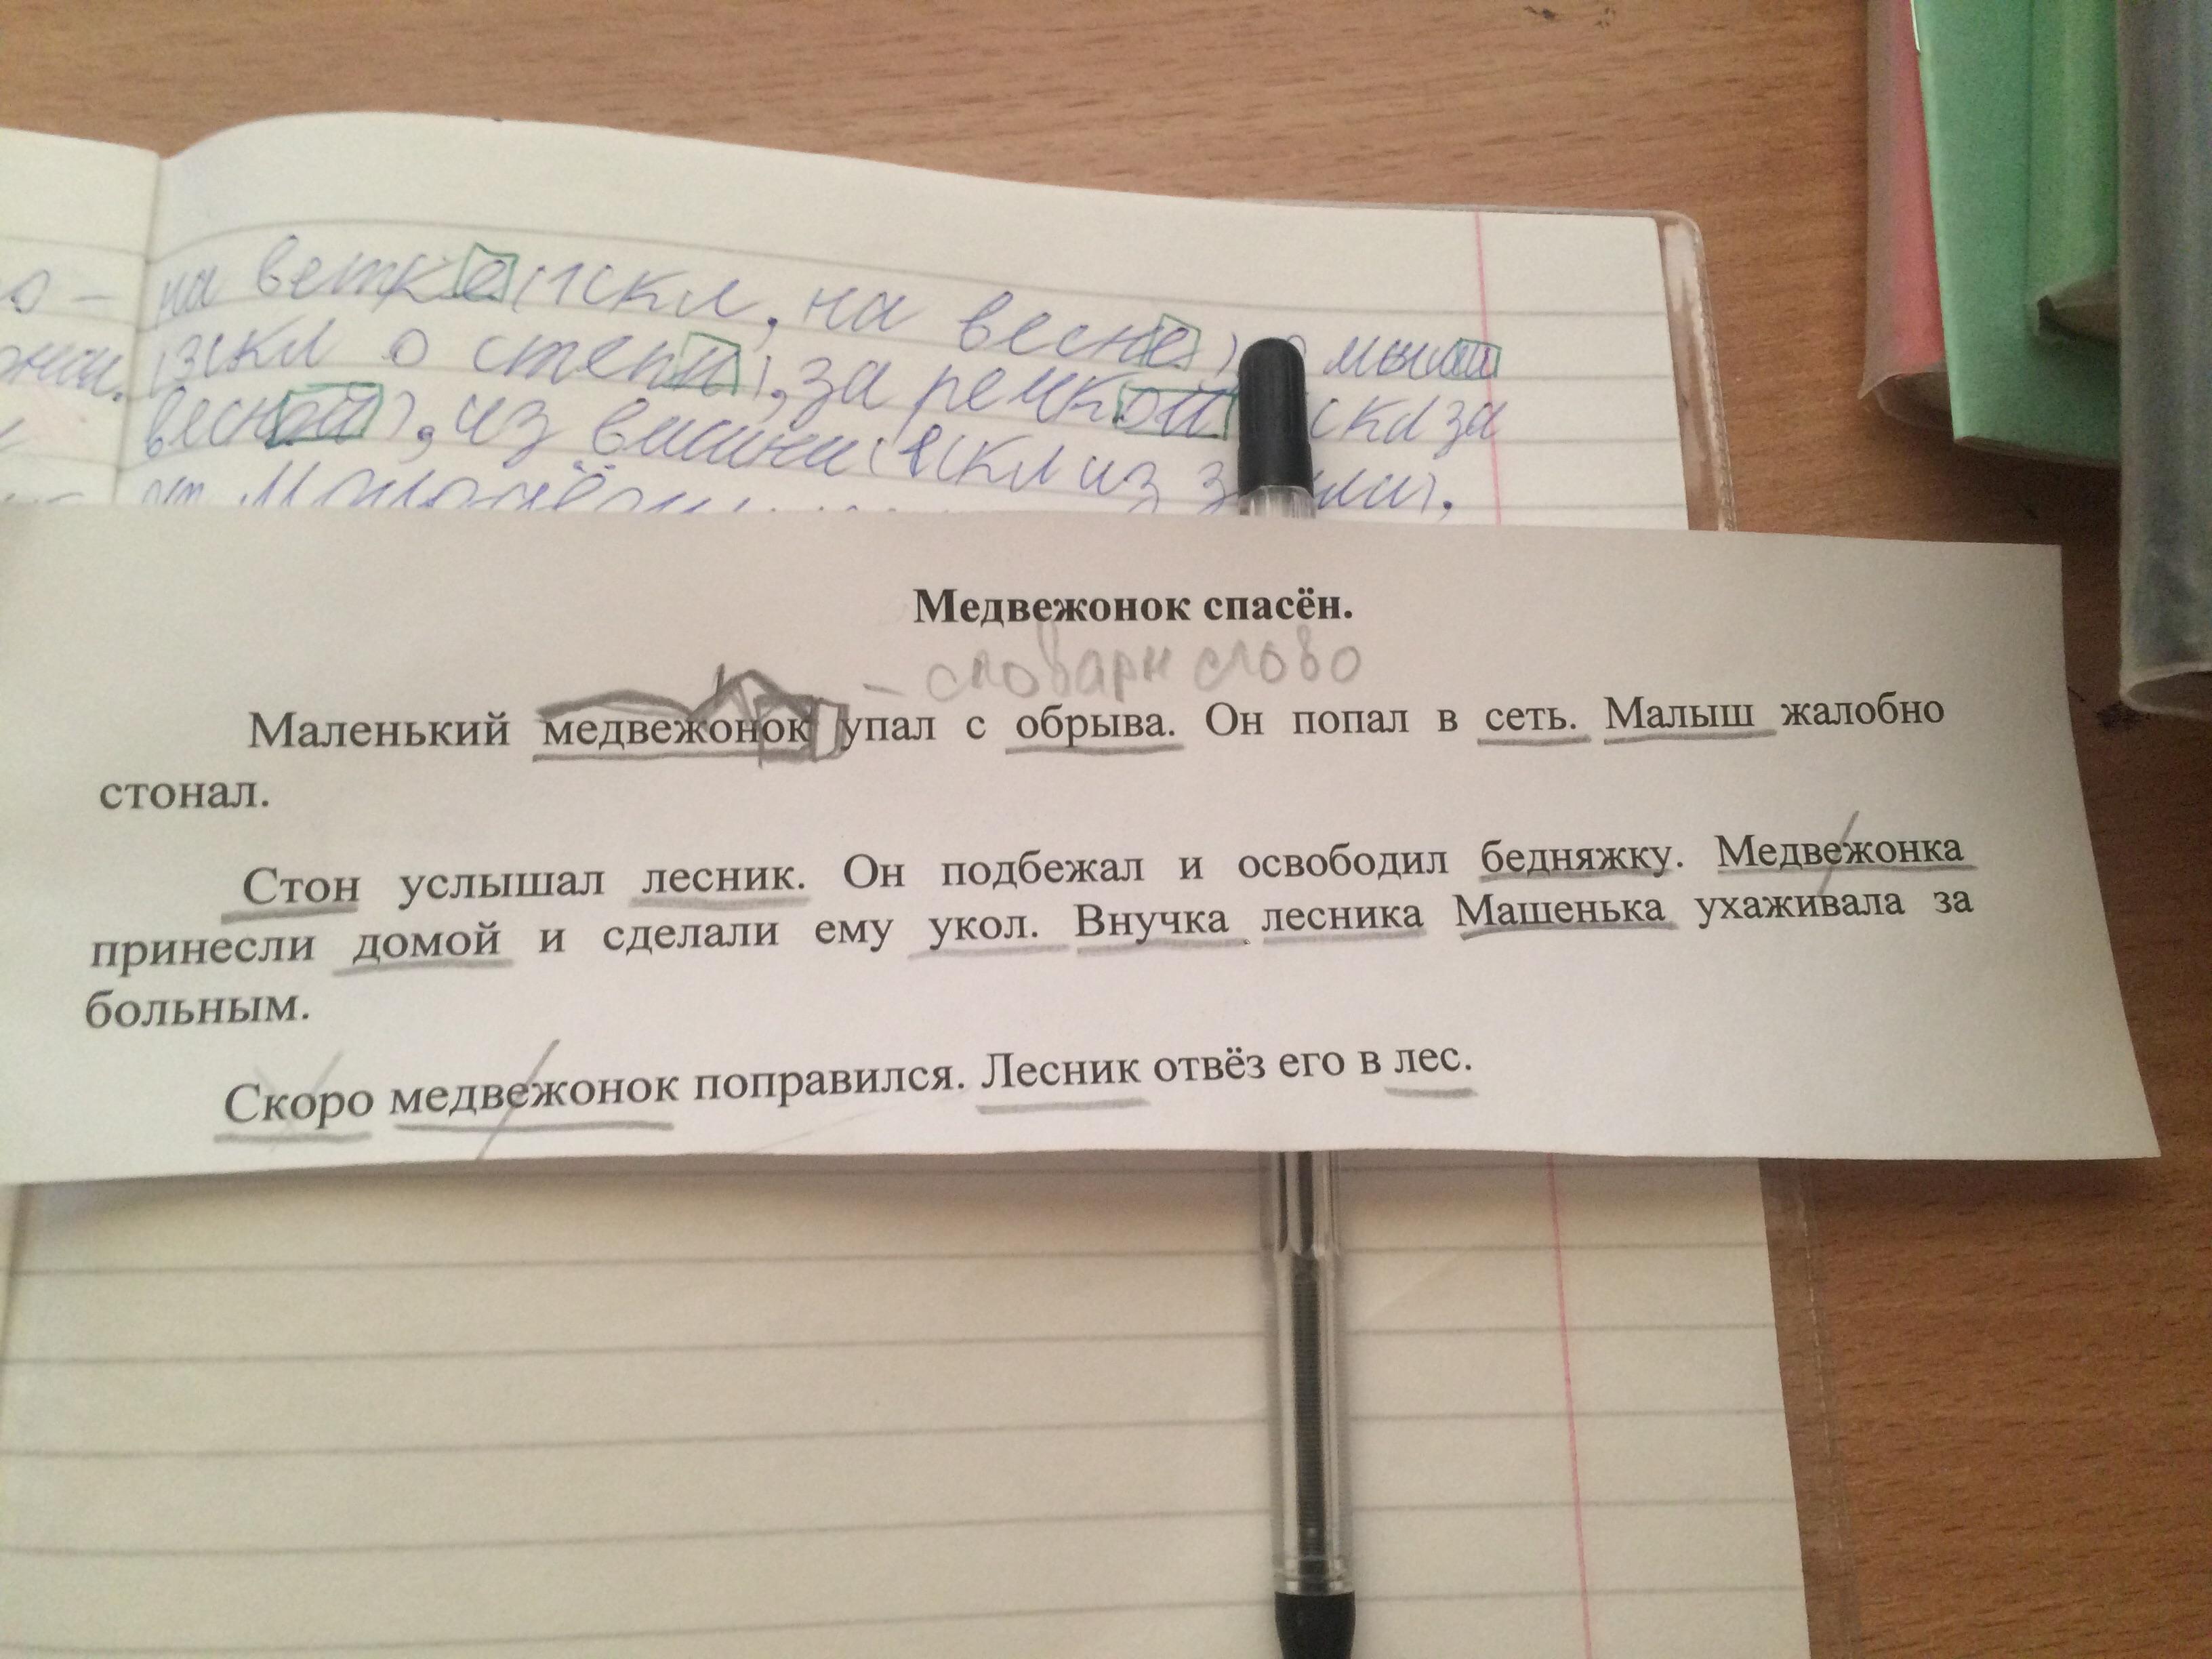 на ветке (1скл, на весне), о мыши
(3скл о степи), за речкой скл за
весной), из вишни (1скл из земли).
Медвежонок спасён.
– словарн слово
Маленький медвежонок упал с обрыва. Он попал в сеть. Малыш жалобно
стонал.
Стон услышал лесник. Он подбежал и освободил бедняжку. Медвежонка
принесли домой и сделали ему укол. Внучка лесника Машенька ухаживала за
больным.
Скоро медвежонок поправился. Лесник отвёз его в лес.